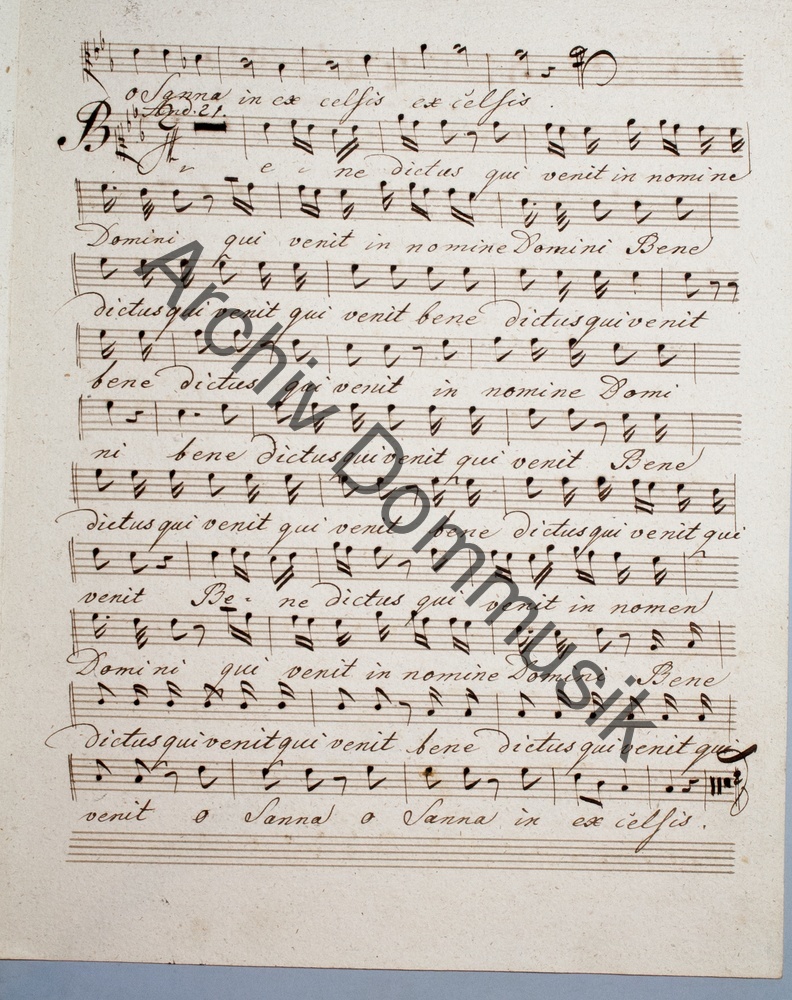 o Sanna in ex celsis ex celsis .
And. 21.
B e ne dictus qui venit in nomine
Domini qui venit in nomine Domini Bene
dictus qui venit qui venit bene dictus qui venit
bene dictus qui venit in nomine Domi
ni bene dictus qui venit qui venit Bene
dictus qui venit qui venit bene dictus qui venit qui
venit Be - ne dictus qui venit in nomen
Domini qui venit in nomine Domini Bene
dictus qui venit qui venit bene dictus qui venit qui
venit o Sanna o Sanna in ex celsis .
Archiv Dommusik